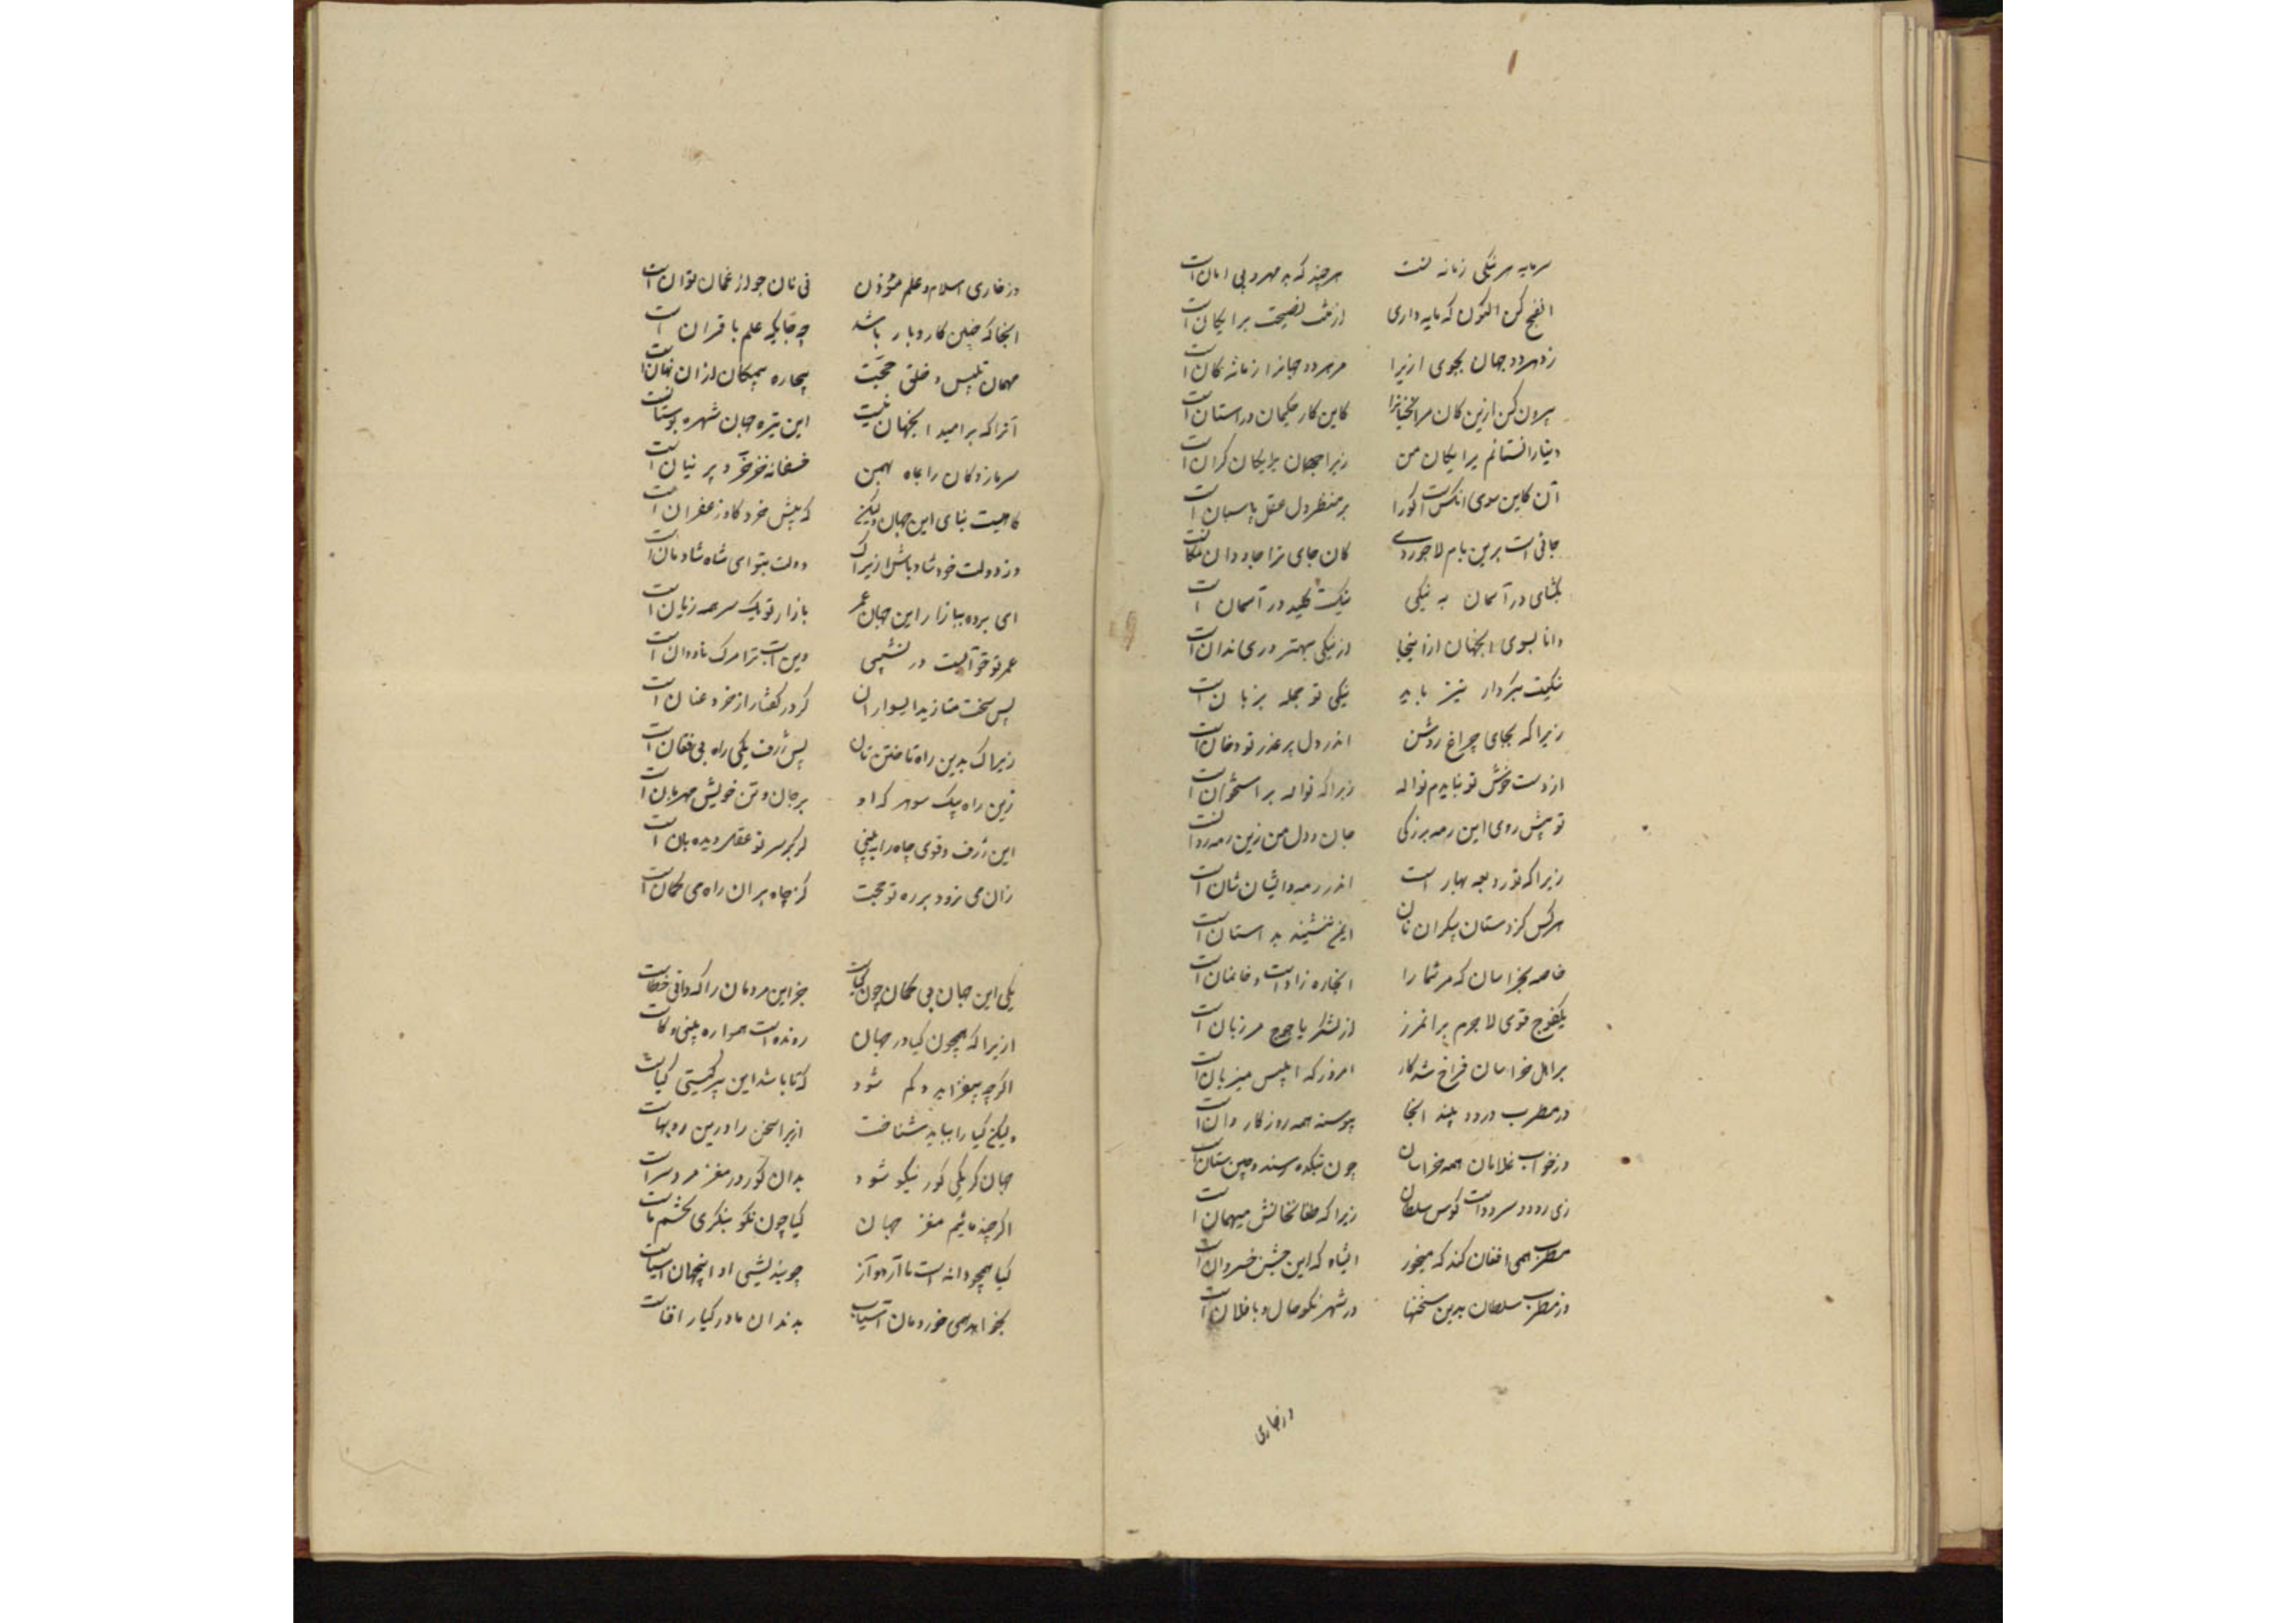 سرمایه هر نیکی زمانه است هرچند که بد مهر و بی امان است
الفنج کن اکنون که مایه داری از منت نصیحت برایگان است
زو هر دو جهان بجوی ازیرا مر هر دو جهانرا زمانه کان است
بیرون کن ازین کان مر آنجهانرا کاین کار حکیمان و راستان است
دنیا نستانم برایگان من زیرا جهان برایگان گران است
آن کاین سوی آنکس است کورا بر منظر دل عقل پاسبان است
جائی است برین بام لاجوردی کان جای ترا جاودان مکانست
بگشای در آسمان به نیکی نیکیست کلید در آسمان است
دانا بسوی آنجهان از اینجا از نیکی بهتر دری ندان است
نیکیت بکردار نیز باید نیکی تو جمله بر زبان است
زیرا که بجای چراغ روشن اندر دل پر غدر تو دخان است
از دست خوش تو نبایدم نواله زیرا که نواله بر استخوان است
تو پیش روی این رمه بزرگی جان و دل من زین رمه روانست
زیرا که تو رد بعه بهار است اندر رمه و ایشان شان است
هرکس کز دستان بیکران تان ایمن ننشیند بد استان است
خاصه بخراسان که مر شما را آنجا ره زاد است و خانمان است
یکفوج قوی لاجرم بر آنمرز از لشکر یاجوج مرزبان است
بر اهل خراسان فراخ شد کار امروز که ابلیس میزبان است
وز مطرب و رود و بلند آنجا پیوسته همه روز کاروان است
وز خواب غلامان همه خراسان چون بتکده سند و چین ستان است
زی رود و سرود است گوش سلطان زیرا که طغان خانش میهمان است
مطرب همی افغان کند که میخور ای شاه که این جشن خسروان است
وز مطرب سلطان بدین سخنها در شهر نکو حال و با فلان است
وز خاری
وز خاری اسلام و علم مؤذن بی نان چو از غمان نوان است
آنجا که چنین کار و بار باشد چه جایگه علم یا قران است
مهمان بلیس و خلق حجت بیچاره بیمگان از آن نهان است
آنرا که بر امید آنجهان نیست این تیره جهان شهره بوستانست
سرما زدگان را بماه بهمن خفسانه خز خود و پرنیان است
کاهیست بنای این جهان ولیکن که پیش خر و گاو زعفران است
وز دولت خود شاد باش ازیراک دولت بتو ای شاه شادمان است
ای برده ببازار این جهان عمر بازار تو یکسر همه زیان است
عمر تو خوآبیست در نشیبی وین آب ترا مرگ ناودان است
پس سخت متازید ای سواران گر در کفتان از خرد عنان است
زیراک بدین راه تاختن تان پس ژرف یکی راه بی فغان است
زین راه بیک سو هر که او بر جان و تن خویش مهربان است
این ژرف و قوی چاه را ببینی گر بر سر تو عقل دیده بان است
زان می نرود بر ره تو حجت کز چاه بران راه می گمان است
یکی این جهان بی گمان چون گیاست جز این مردمان را که دانی خطاست
ازیرا که همچون گیا در جهان رونده است همواره بیشی و کاست
اگرچه بیفزاید و کم شود که تا باشد این پیر گیتی گیاست
ولیکن گیا را بباید شناخت ازیرا سخن را درین رویهاست
جهان گر یکی گوز نیکو شود بدان گوز در مغز مردم سزاست
اگرچند مائیم مغز جهان گیا چون نکو بنگری بخشم ماست
گیا همچو دانه است ما آرد و آز چو بندیشی او اینجهان آسیاست
بخواهد همی خوردمان آسیاب بدندان ما در گیا را فناست